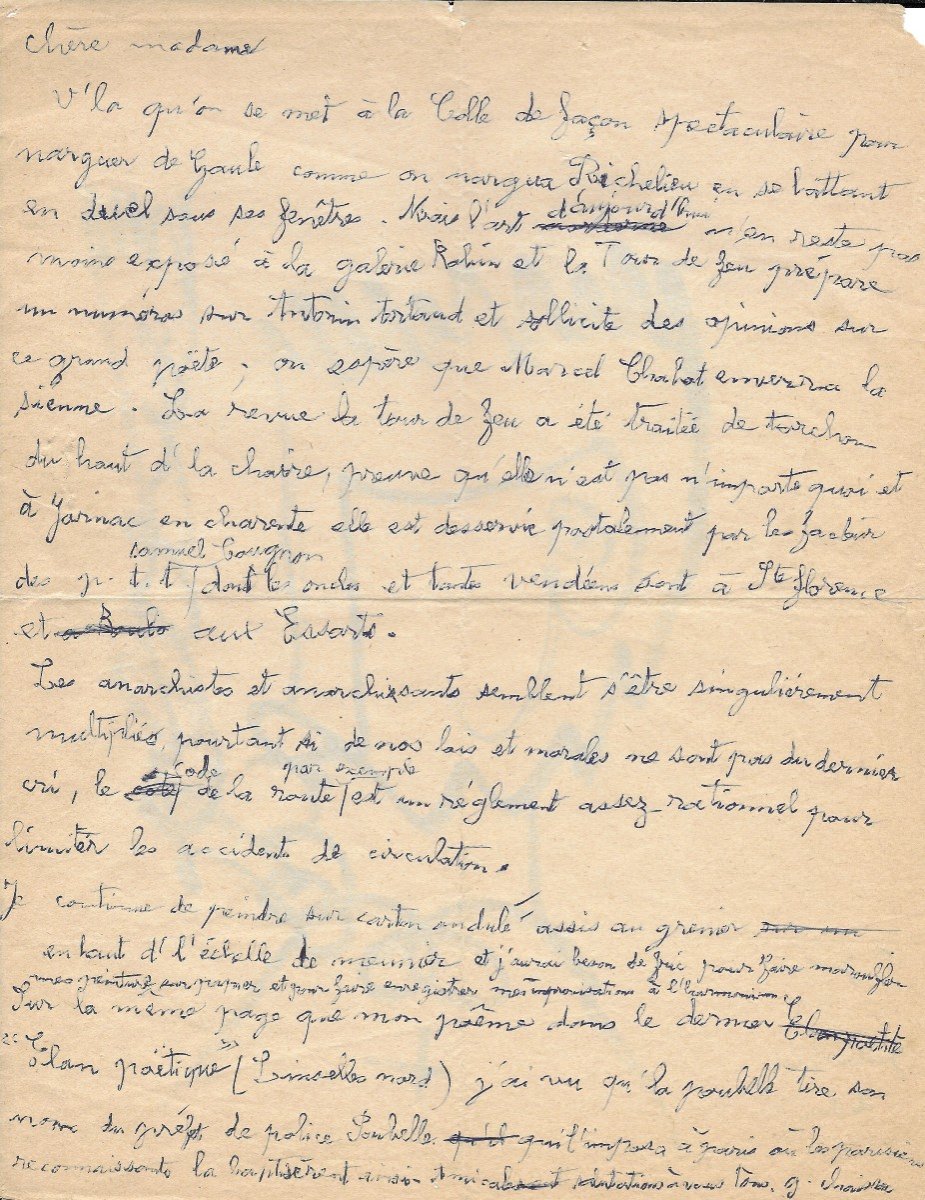 chère madame
V'la qu'on se met à la Colle de façon spectaculaire pour
narguer de Gaule comme on nargua Richelieu en se battant
en duel sous ses fenêtres. Mais l'art d'aujourd'hui n'en reste pas
moins exposé à la galerie Ralin et la Tour de feu prépare
un numéros sur Antonin Artaud et sollicite des opinions sur
ce grand poëte, on espère que Marcel Chabot enverra la
sienne. La revue la tour de feu a été traitée de torchon
du haut d' la chaire, preuve qu'elle n'est pas n'importe quoi et
à Jarnac en charente elle est desservie postalement par les facteur
samuel Cougnon
des p.t.t. / dont les oncles et tantes vendéens sont à Ste florence
et aux Essarts.
Les anarchistes et anarchisants semblent s'être singuliérement
multipliés, pourtant si de nos lois et morales ne sont pas du dernier
code par exemple
cri, le de la route / est un réglement assez rationnel pour
limiter les accidents de circulation.
Je continue de peindre sur carton ondulé assis au grenier
en haut d' l'échelle de meunier et j'aurai besoin de fric pour faire maroufler
mes peintures sur papier et pour faire enregistrer mes improvisations à l'harmonium
Sur la même page que mon poême dans le dernier
"Élan poëtique" (Linselles nord) j'ai vu qu' la poubelle tire son
nom du préfet de police Poubelle qui l'imposa à paris où les parisiens
reconnaissants la baptisèrent ainsi. amicales salutations à vous tous. g. chaissac